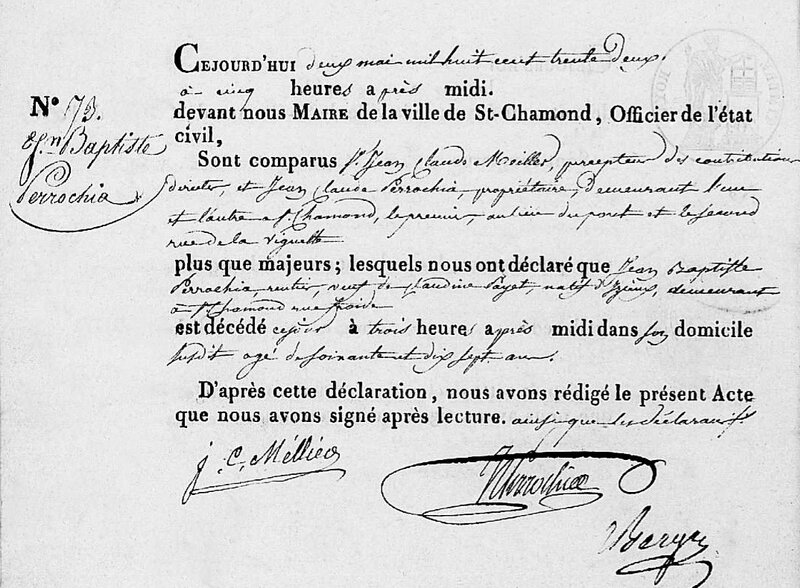 CEJOURD'HUI deux mai mil huit cent trente deux
à cinq heures après midi.
devant nous MAIRE de la ville de St-Chamond, Officier de l'état
civil,
N° 73.
Jn Baptiste
Perrochia
Sont comparus Sr. Jean Claude percepteur des contributions
directes, et Jean Claude Perrochia, propriétaire, demeurant l'un
et l'autre a St Chamond, le premier, au lieu du pont et le second
rue de la viguette
plus que majeurs; lesquels nous ont déclaré que Jean Baptiste
Perrochia rentier, veuf de Claudine Payet, natif d'Izieux, demeurant
à St Chamond rue froide
est décédé cejour à trois heures après midi dans son domicile
susdit agé de soixante et dix sept ans.
D'après cette déclaration, nous avons rédigé le présent Acte
que nous avons signé après lecture. ainsi que les déclarants
j. C. Méllier
Perrochia